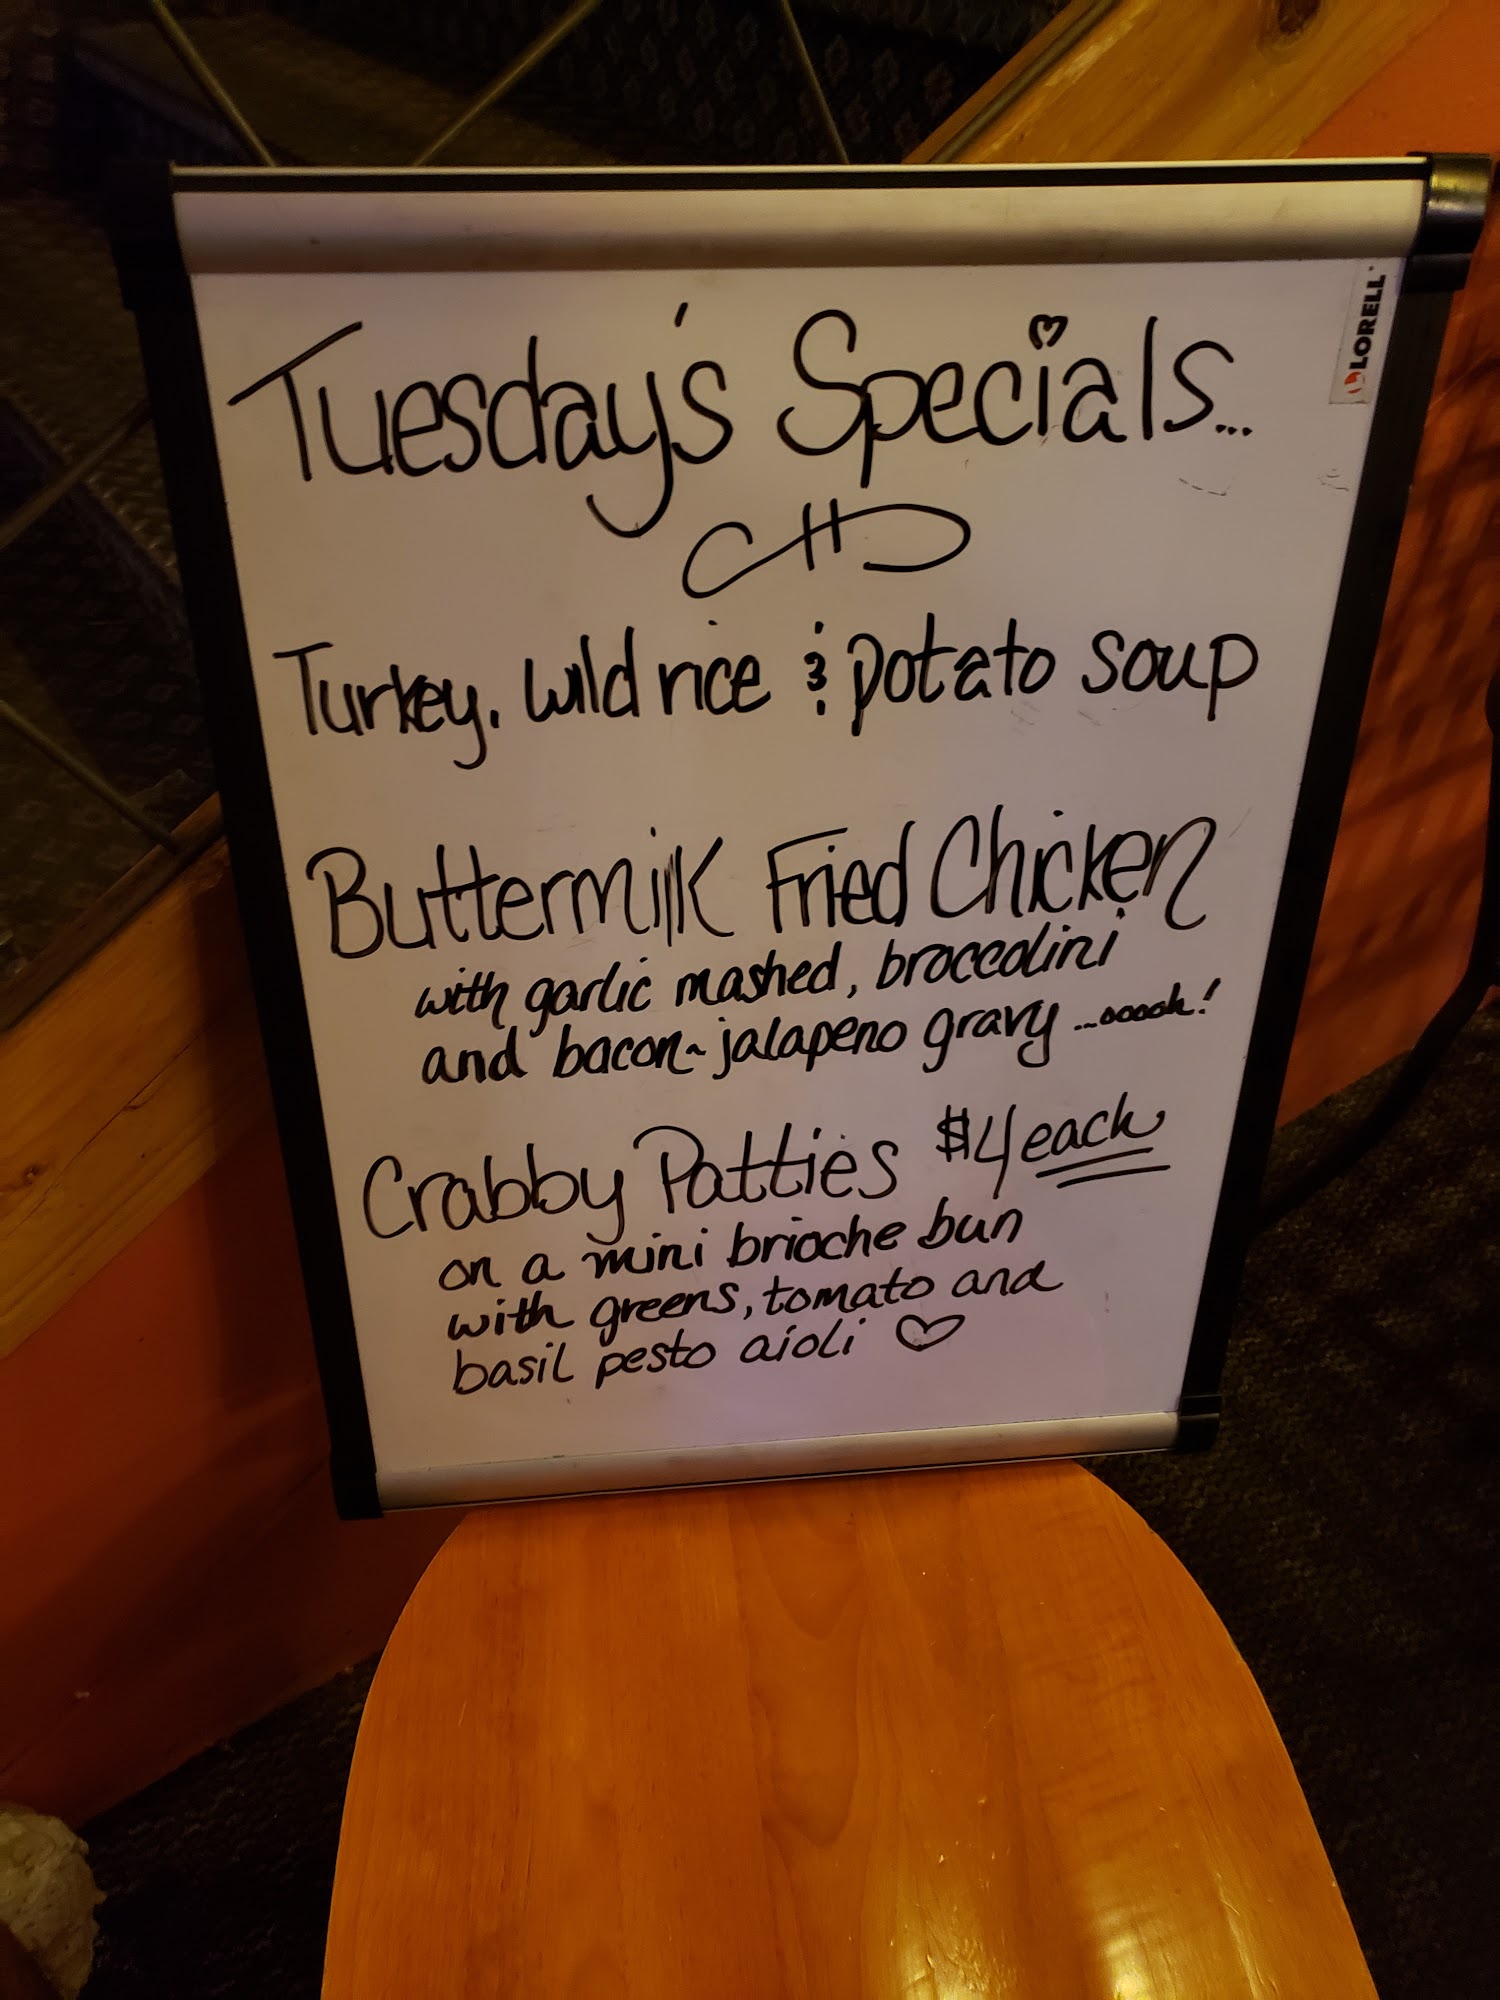 Tuesday's Specials...
LORELL
Turkey, wild rice & potato soup
Buttermilk Fried Chicken
with garlic mashed, broccolini
and bacon-jalapeno gravy ...ooooh!
Crabby Patties $4 each
on a mini brioche bun
with greens, tomato and
basil pesto aioli ♡